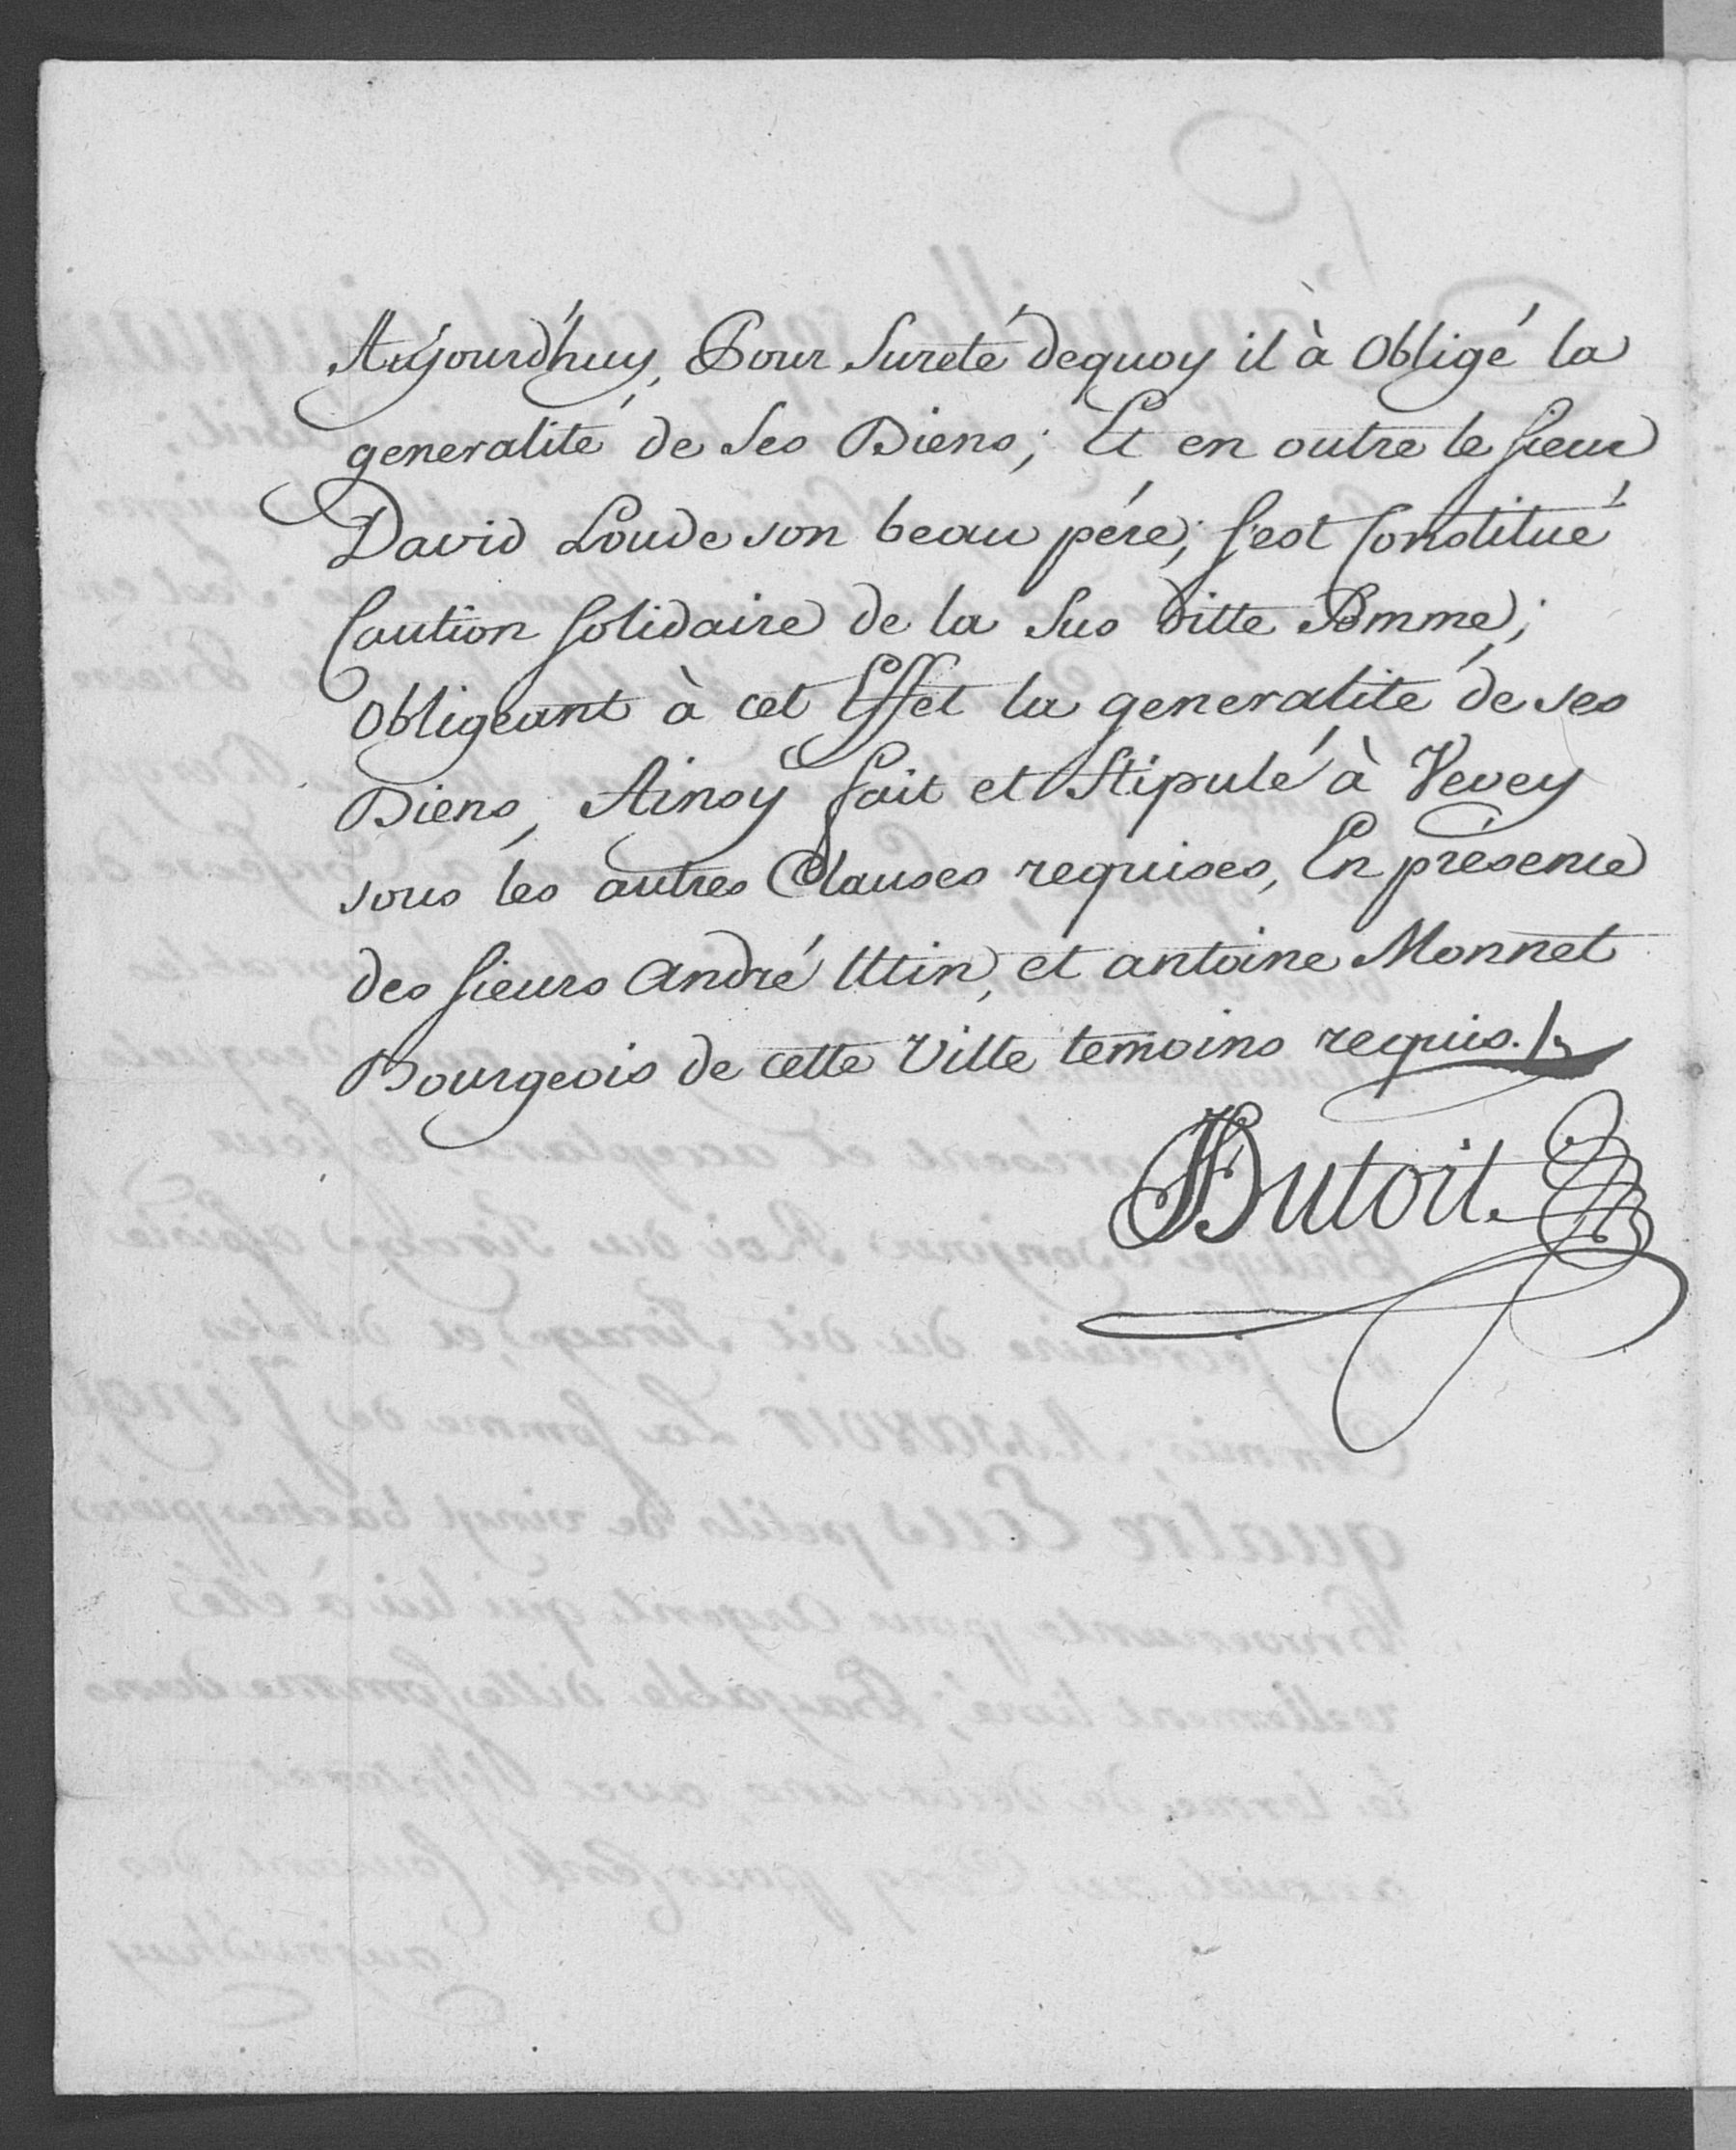 Aujourd'huy, Pour Sureté dequoy il à Obligé la
generalité de Ses Biens; Et en outre le sieur
David Loude son beau pére; s'est Constitué
Caution solidaire de la Sus ditte Somme;
Obligeant à cet Effet la generalité de ses
Biens, Ainsÿ fait et Stipulé à Vevey
sous les autres Clauses requises, En présence
des sieurs André Uttin, et antoine Monnet
Bourgeois de cette Ville temoins requis.
Dutoit.